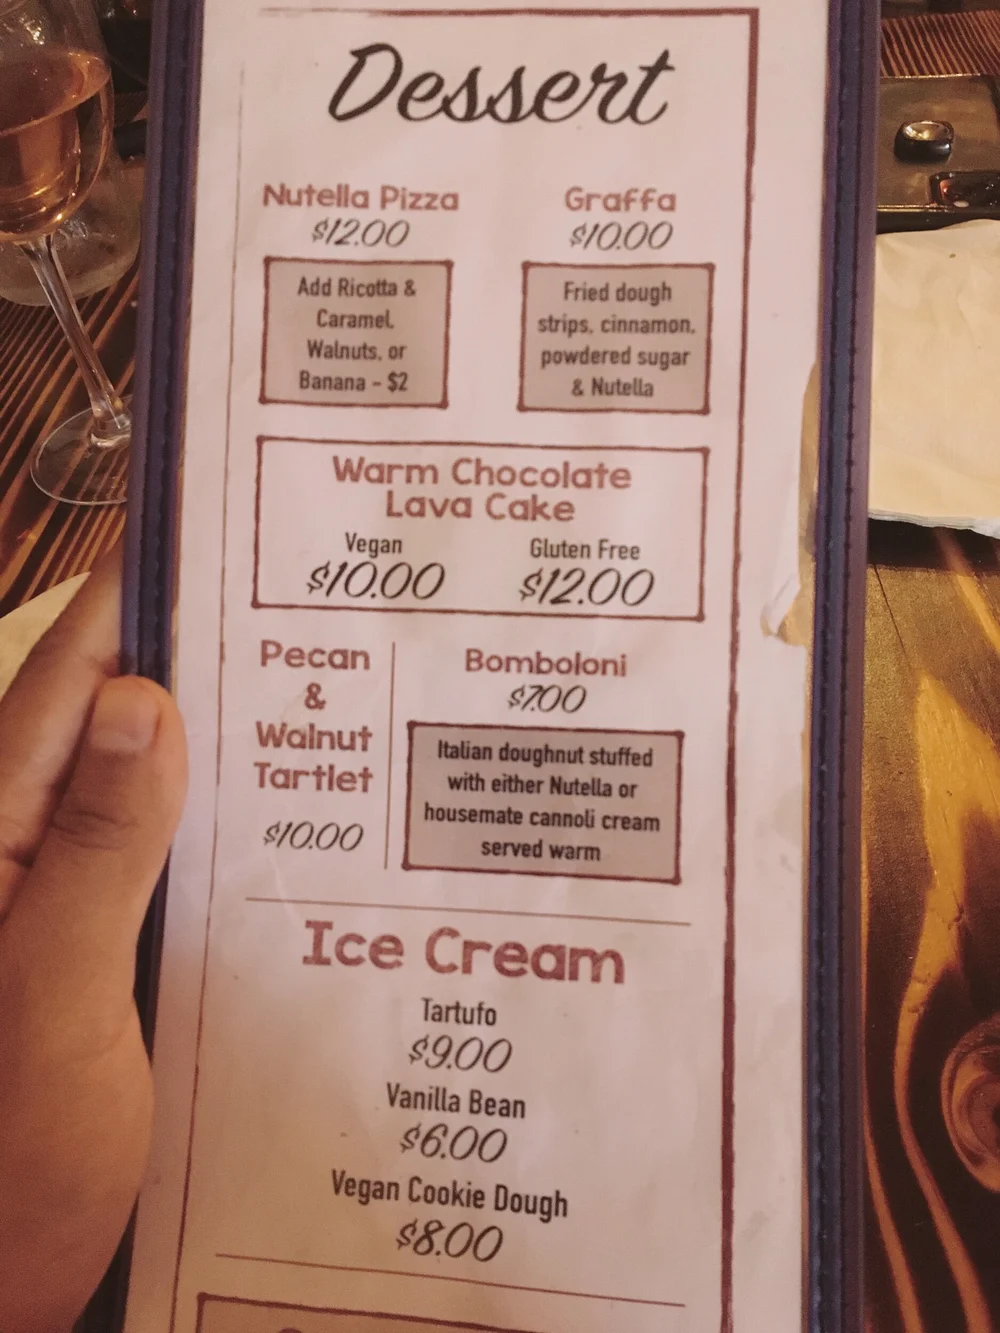 Dessert
Nutella Pizza
$12.00
Add Ricotta &
Caramel,
Walnuts, or
Banana - $2
Graffa
$10.00
Fried dough
strips, cinnamon,
powdered sugar
& Nutella
Warm Chocolate
Lava Cake
Vegan
$10.00
Gluten Free
$12.00
Pecan
&
Walnut
Tartlet
$10.00
Bomboloni
$7.00
Italian doughnut stuffed
with either Nutella or
housemate cannoli cream
served warm
Ice Cream
Tartufo
$9.00
Vanilla Bean
$6.00
Vegan Cookie Dough
$8.00